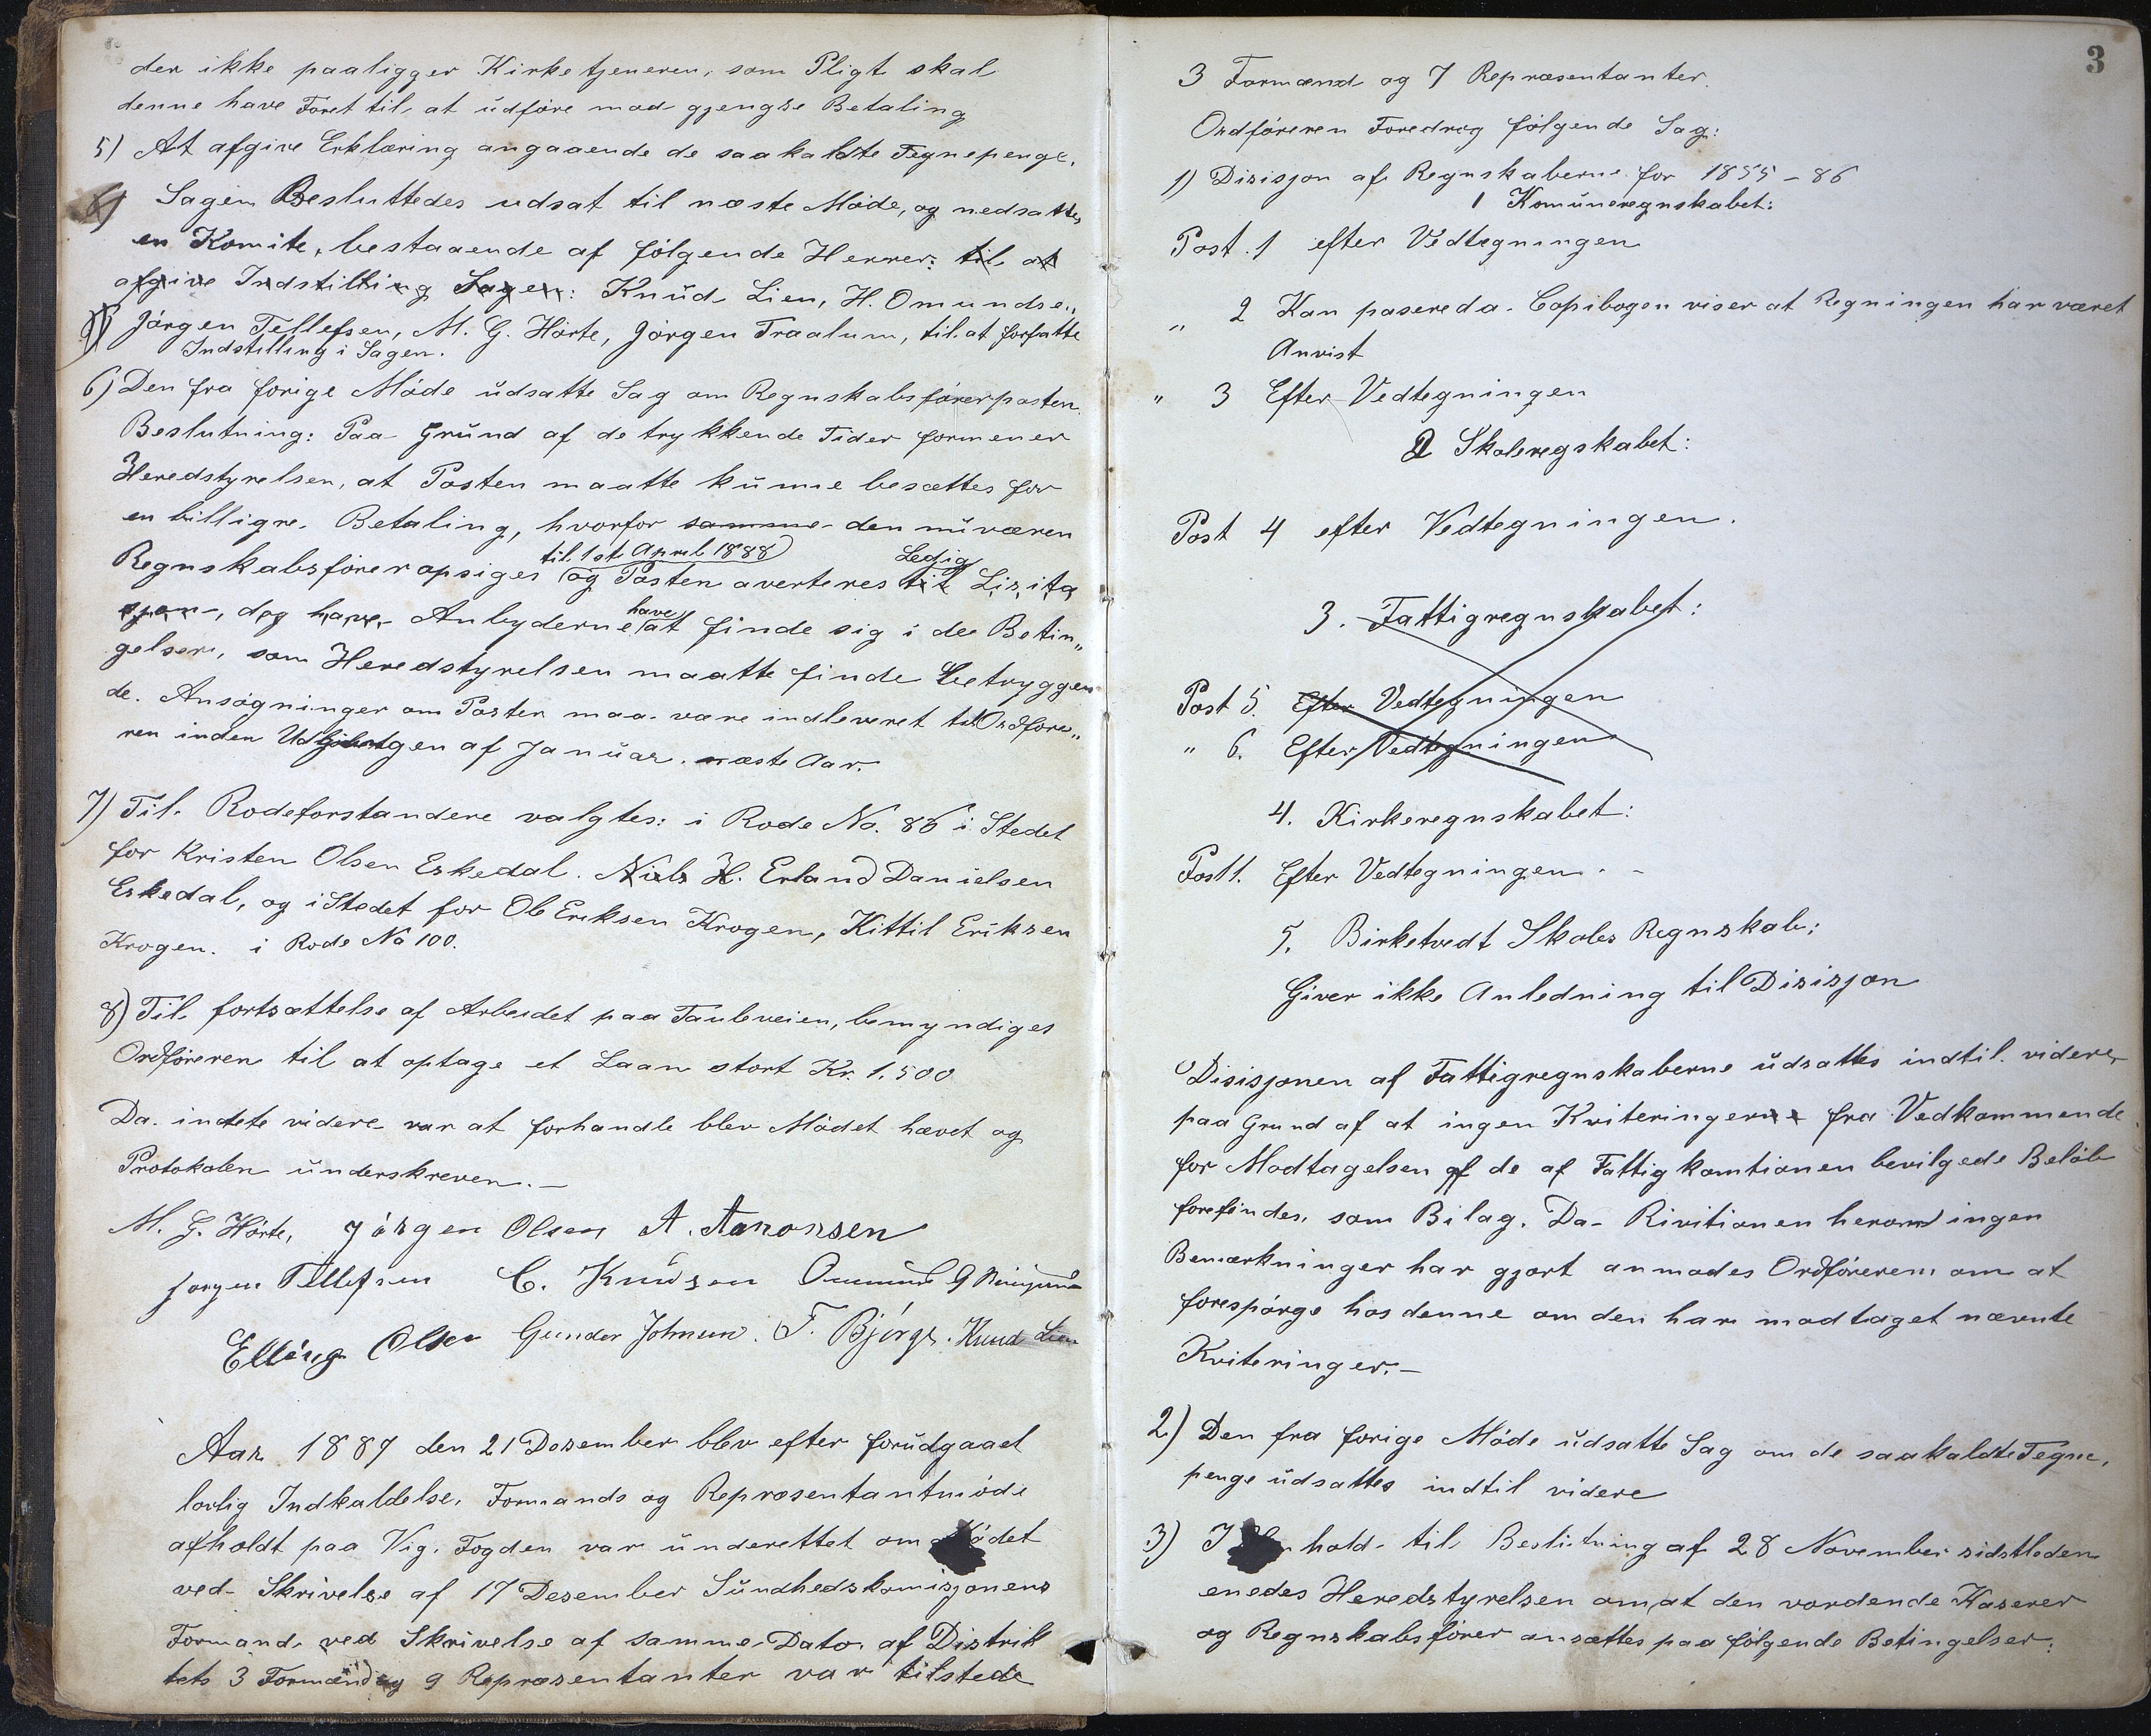 der ikke paaligger Kirketjeneren, som Pligt skal
denne have Foret til at udføre mod gjengse Betaling
5) At afgive Erklæring angaaende de saakaldte Tegnepenge.
Sagen Besluttedes udsat til næste Møde, og nedsattes
en Komite, bestaaende af følgende Herrer: til at
afgive Indstilling Sagen: Knud Lien, H. Omundsen,
Jørgen Tellefsen, M. G. Hørte, Jørgen Traalum, til at forfatte
Indstilling i Sagen.
6) Den fra forige Møde udsatte Sag om Regnskabsførerposten.
Beslutning: Paa Grund af de trykkende Tider formener
Heredstyrelsen, at Posten maatte kunne besættes for
en billigre Betaling, hvorfor samme den nuværen
til 1st April 1888 Ledig
Regnskabsfører opsiges og Posten averteres til Lizita
sjon, dog have Anbyderne have at finde sig i de Betin„
gelser, som Heredstyrelsen maatte finde betryggen
de. Ansøgninger om Posten maa være indleveret til Ordføre„
ren inden Udgangen af Januar næste Aar.
7) Til Rodeforstandere valgtes: i Rode No. 86 i Stedet
for Kristen Olsen Eskedal. Niels H. Erland Danielsen
Eskedal, og i Stedet for Ole Eriksen Krogen, Kittil Eriksen
Krogen. i Rode No 100.
8) Til fortsættelse af Arbeidet paa Tauleveien, bemyndiges
Ordføreren til at optage et Laan stort Kr. 1.500
Da intete videre var at forhandle blev Mødet hævet og
Protokolen underskreven.—
M. G. Hørte, Jørgen Olsen A. Aanonsen
Jørgen Tellefsen C. Knudsen Omund G
Elling Olsen Gunder Johnsen. T. Bjorge. Knud Lien
Aar 1887 den 21 Desember blev efter forudgaaet
lovlig Indkaldelse, Formands og Repræsentantmøde
afholdt paa Vig. Fogden var underettet om Mødet
ved Skrivelse af 17 Desember Sundhedskomisjonens
Formand ved Skrivelse af samme Dato. af Distrik
tets 3 Formænd og 9 Repræsentanter var tilstede
3
3 Formænd og 7 Repræsentanter.
Ordføreren Foredrog følgende Sag:
1) Disisjon af Regnskaberne for 1855 – 86
1 Komuneregnskabet:
Post. 1 efter Vedtegningen
„ 2 Kan pasere da Copibogen viser at Regningen har været
Anvist
„ 3 Efter Vedtegningen
2 Skoleregskabet:
Post 4 efter Vedtegningen.
3. Fattigregnskabet:
Post 5. Efter Vedtegningen
„ 6. Efter Vedtegningen
4. Kirkeregnskabet:
Post 1. Efter Vedtegningen. –
5. Birketvedt Skoles Regnskab:
Giver ikke Anledning til Disisjon
Disisjonen af Fattigregnskaberne udsattes indtil videre,
paa Grund af at ingen Kviteringerne fra Vedkommende
for Modtagelsen af de af Fattigkomtionen bevilgede Beløb
forefindes, som Bilag. Da Rivitionen herom ingen
Bemærkninger har gjort anmodes Ordføreren om at
forespørge hos denne om den har modtaget nævnte
Kviteringer.—
2) Den fra forige Møde udsatte Sag om de saakaldte Tegne„
penge udsattes indtil videre
3) I hold til Beslutning af 28 November sidstleden
enedes Heredstyrelsen om, at den vordende Kaserer
og Regnskabsfører ansættes paa følgende Betingelser: